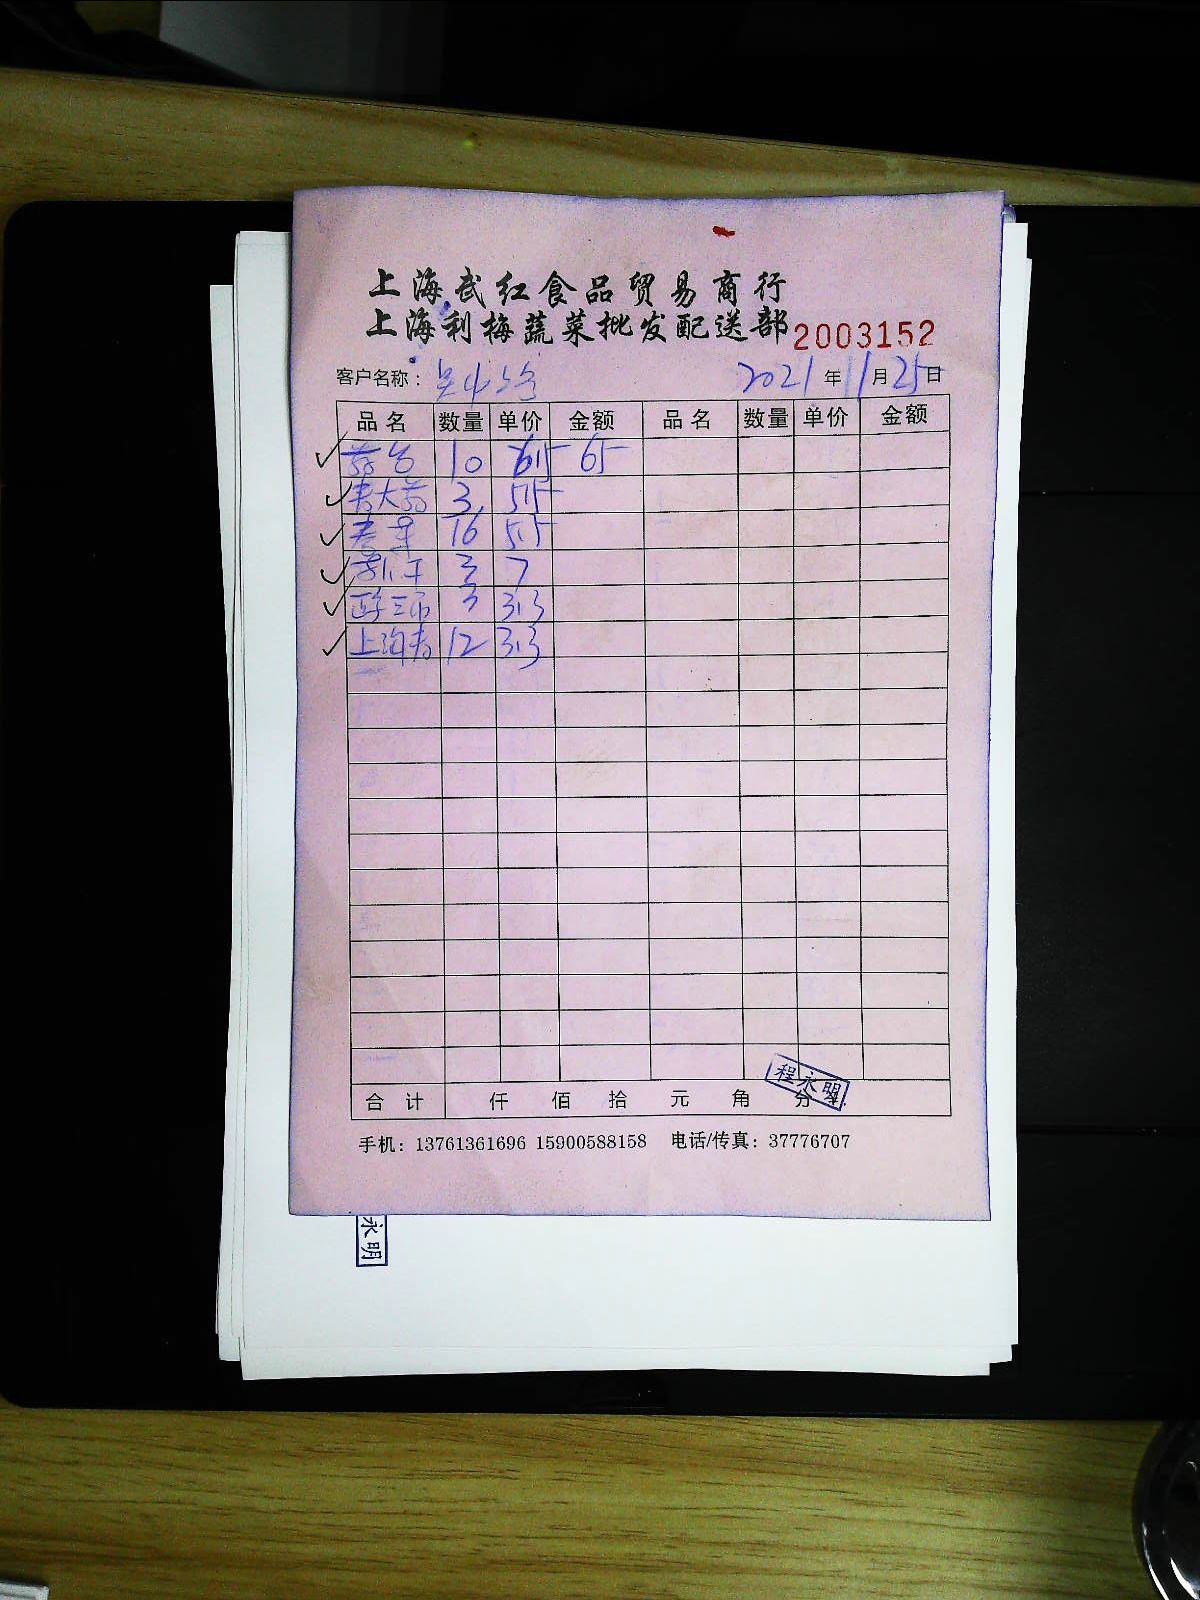 上海武红食品贸易商行
上海利梅蔬菜批发配送部 2003152
客户名称： 2021年11月25日
品名 数量 单价 金额 品名 数量 单价 金额
10 6.5 65
3 5.5
16 5.5
3 7
3 3.3
上海青 12 3.3
合计 仟 佰 拾 元 角 分
程永明
手机：13761361696 15900588158 电话/传真：37776707
永明